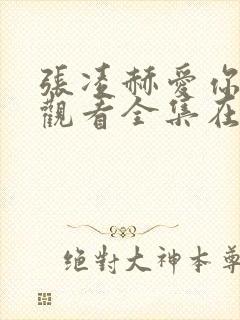 張凌赫愛你
觀看全集在
絕對大神本尊